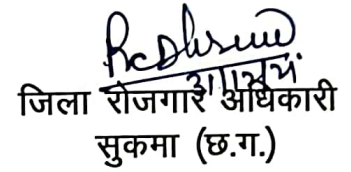 जिला रोजगार अधिकारी
सुकमा (छ.ग.)